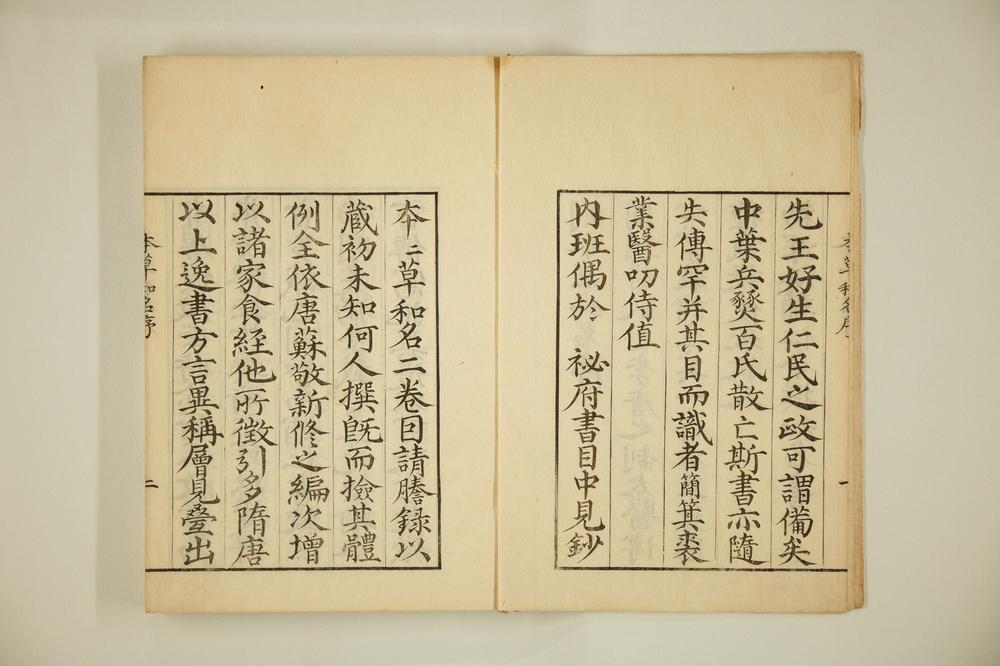 本草和名序
一
先王好生仁民之政可謂備矣
中葉兵燹百氏散亡斯書亦隨
失傳罕并其目而識者簡箕裘
業醫叨侍值
內班偶於 祕府書目中見鈔
本二草和名二卷因請謄錄以
藏初未知何人撰既而撿其體
例全依唐蘇敬新修之編次增
以諸家食経他所徵引多隋唐
以上逸書方言異稱層見疊出
本草和名序
二